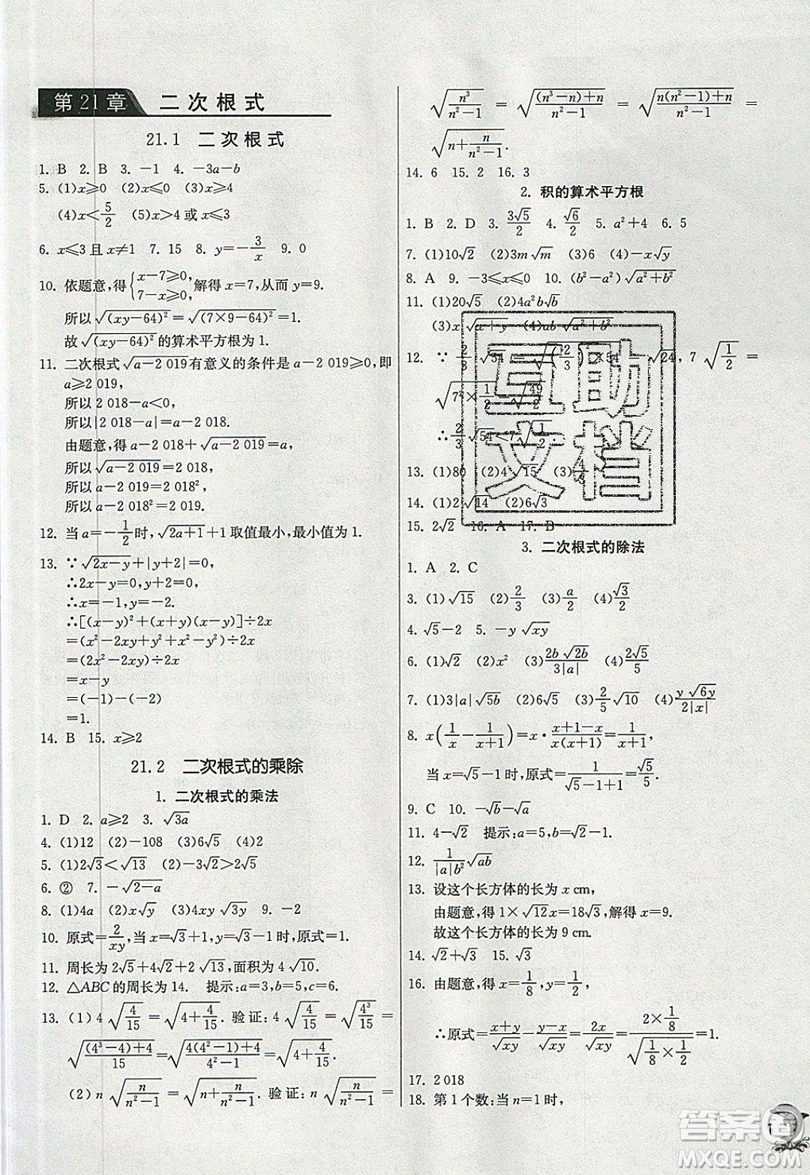 第21章 二次根式
21.1 二次根式
1. B 2. B 3. -1 4. -3a-b
5. (1)x≥0 (2)x≤0 (3)x≥4
(4)x<5/2 (5)x>0 (6)x≤3
6. x≤3且x≠1 7. 15 8. y=-3/x 9. 0
10. 依题意,得{x-7≥0, 7-x≥0, 解得x=7,从而y=9.
所以√(xy-64)²=√(7×9-64)²=1.
故√(xy-64)²的算术平方根为1.
11. 二次根式√a-2 019有意义的条件是a-2 019≥0,即
a≥2 019.
所以2 018-a<0.
所以|2 018-a|=a-2 018.
由题意,得a-2 018+√a-2 019=a,
所以√a-2 019=2 018.
所以a-2 019=2 018².
所以a-2 018²=2 019.
12. 当a=-1/2时,√2a+1+1取值最小,最小值为1.
13. ∵√2x-y+|y+2|=0,
∴2x-y=0,y+2=0.
∴x=-1,y=-2
∴[(x-y)²+(x+y)(x-y)]÷2x
=(x²-2xy+y²+x²-y²)÷2x
=(2x²-2xy)÷2x
=x-y
=(-1)-(-2)
=1.
14. B 15. x≥2
21.2 二次根式的乘除
1. 二次根式的乘法
1. D 2. a≥2 3. √3a
4. (1)12 (2)-108 (3)6√5 (4)2
5. (1)2√3<√13 (2)-2√11>-3√5
6. ② 7. -√2-a
8. (1)4a (2)x√y (3)4xy√3y 9. -2
10. 原式=2/xy,当x=√3+1,y=√3-1时,原式=1.
11. 周长为2√5+4√2+2√13,面积为4√10.
12. △ABC的周长为14. 提示:a=3,b=5,c=6.
13. (1) 4√4/15=√4³/15. 验证:4√4/15=√4³/15=
√(4³-4)+4/15=√4(4²-1)+4/4²-1=√4+4/15.
(2) n√n/n²-1=√n+n/n²-1 验证:n√n/n²-1=
√n³/n²-1=√(n³-n)+n/n²-1=√n(n²-1)+n/n²-1=
√n+n/n²-1.
14. 6 15. 2 16. 3
2. 积的算术平方根
1. B 2. D 3. 3√5/2 4. √6/2 5. a²+4 6. 5
7. (1)10√2 (2)3m√m (3)6c (4)-x√y
8. A 9. -3≤x≤0 10. (b²-a²)√a²+b²
11. (1)20√5 (2)4a²b√b
(3)x√x+y (4)ab√a+b
12. ∵2/3√54=√(2/3)²×54=√24, 7√1/2=
√7²×1/2=√49/2,
∴2/3√54<7√1/2.
13. (1)80 (2)4√5 (3)4/3
14. (1)2√14 (2)6√3
15. 2√2 16. A 17. B
3. 二次根式的除法
1. A 2. C
3. (1)√15 (2)2/3 (3)a/2 (4)√2/3
4. √5-2 5. -y√xy
6. (1)√2 (2)x² (3)2b√2b/3|a| (4)2√5/5
7. (1)3|a|√5b (2)6√5 (3)2/5√10 (4)y√6y/2|x|
8. x(1/x-1/x+1)=x·x+1-x/x(x+1)=1/x+1,
当x=√5-1时,原式=1/√5-1+1=√5/5.
9. C 10. -√b-√a
11. 4-√2 提示:a=5,b=√2-1.
12. 1/|a|b²√ab
13. 设这个长方体的长为x cm,
由题意,得1×√12x=18√3,解得x=9.
故这个长方体的长为9 cm.
14. √2+√3 15. √3
16. 由题意,得x=1/8,y=1/2,
∴原式=x+y/√xy-y-x/√xy=2x/√xy=2×1/8/√1/8×1/2=1.
17. 2 018
18. 第1个数:当n=1时,
互助
文档
答案
MXQE.COM